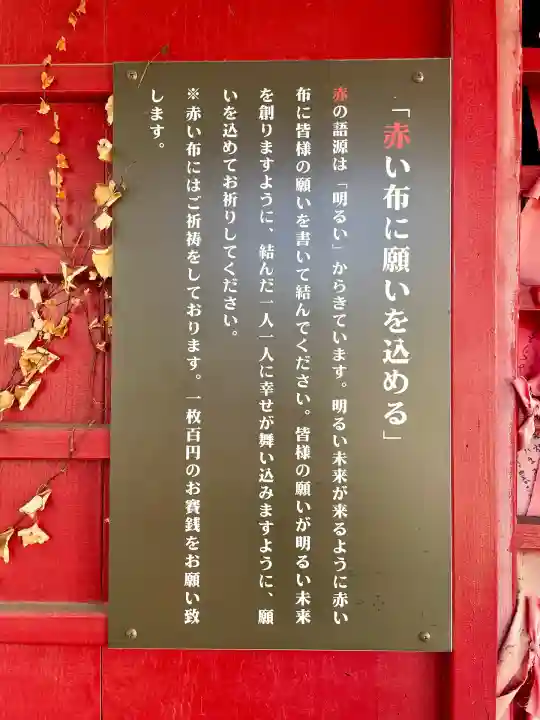 「赤い布に願いを込める」
赤の語源は「明るい」からきています。明るい未来が来るように赤い
布に皆様の願いを書いて結んでください。皆様の願いが明るい未来
を創りますように、結んだ一人一人に幸せが舞い込みますように、願
いを込めてお祈りしてください。
※赤い布にはご祈祷をしております。一枚百円のお賽銭をお願い致
します。